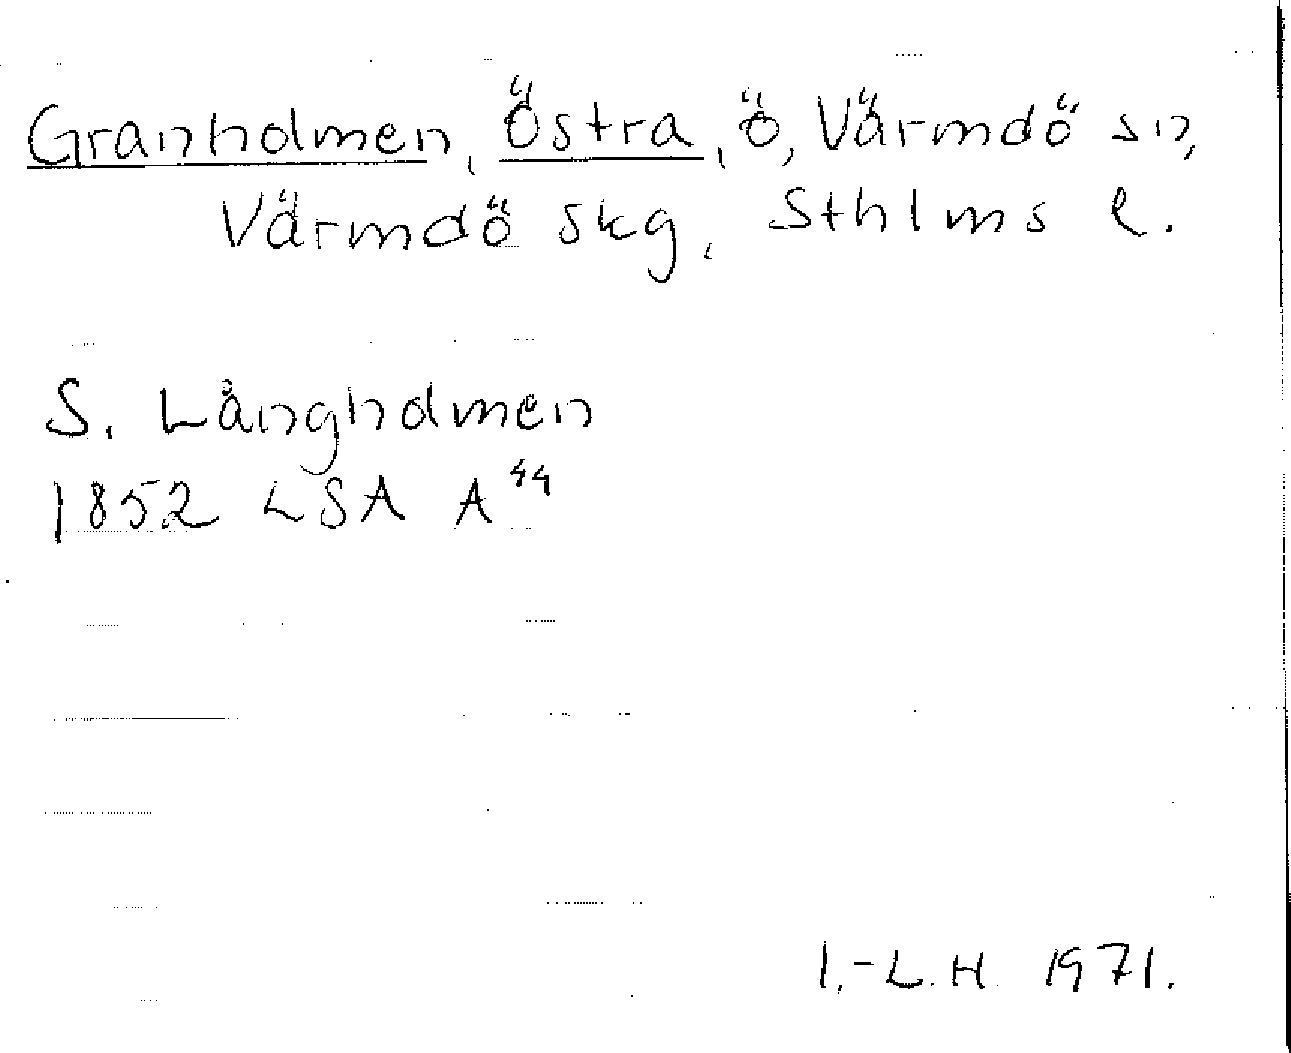 Granholmen, Östra, ö, Värmdö sn,
Värmdö skg, Sthlms l.
S. Långholmen
1852 LSA A⁴⁴
I.-L.H. 1971.